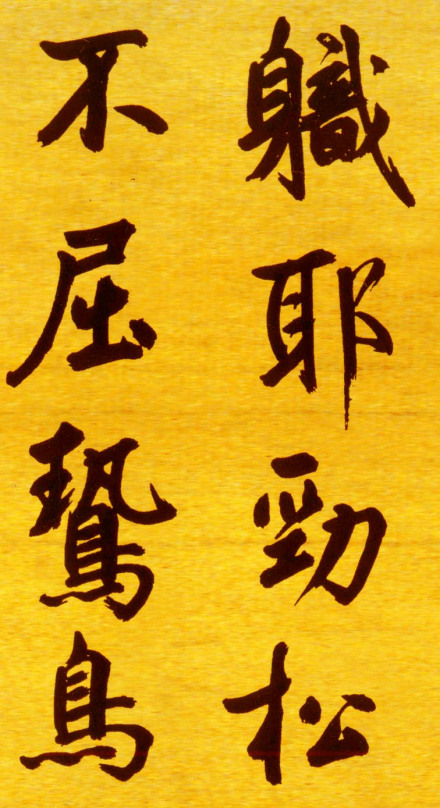 軄耶勁松
不屈鷙鳥